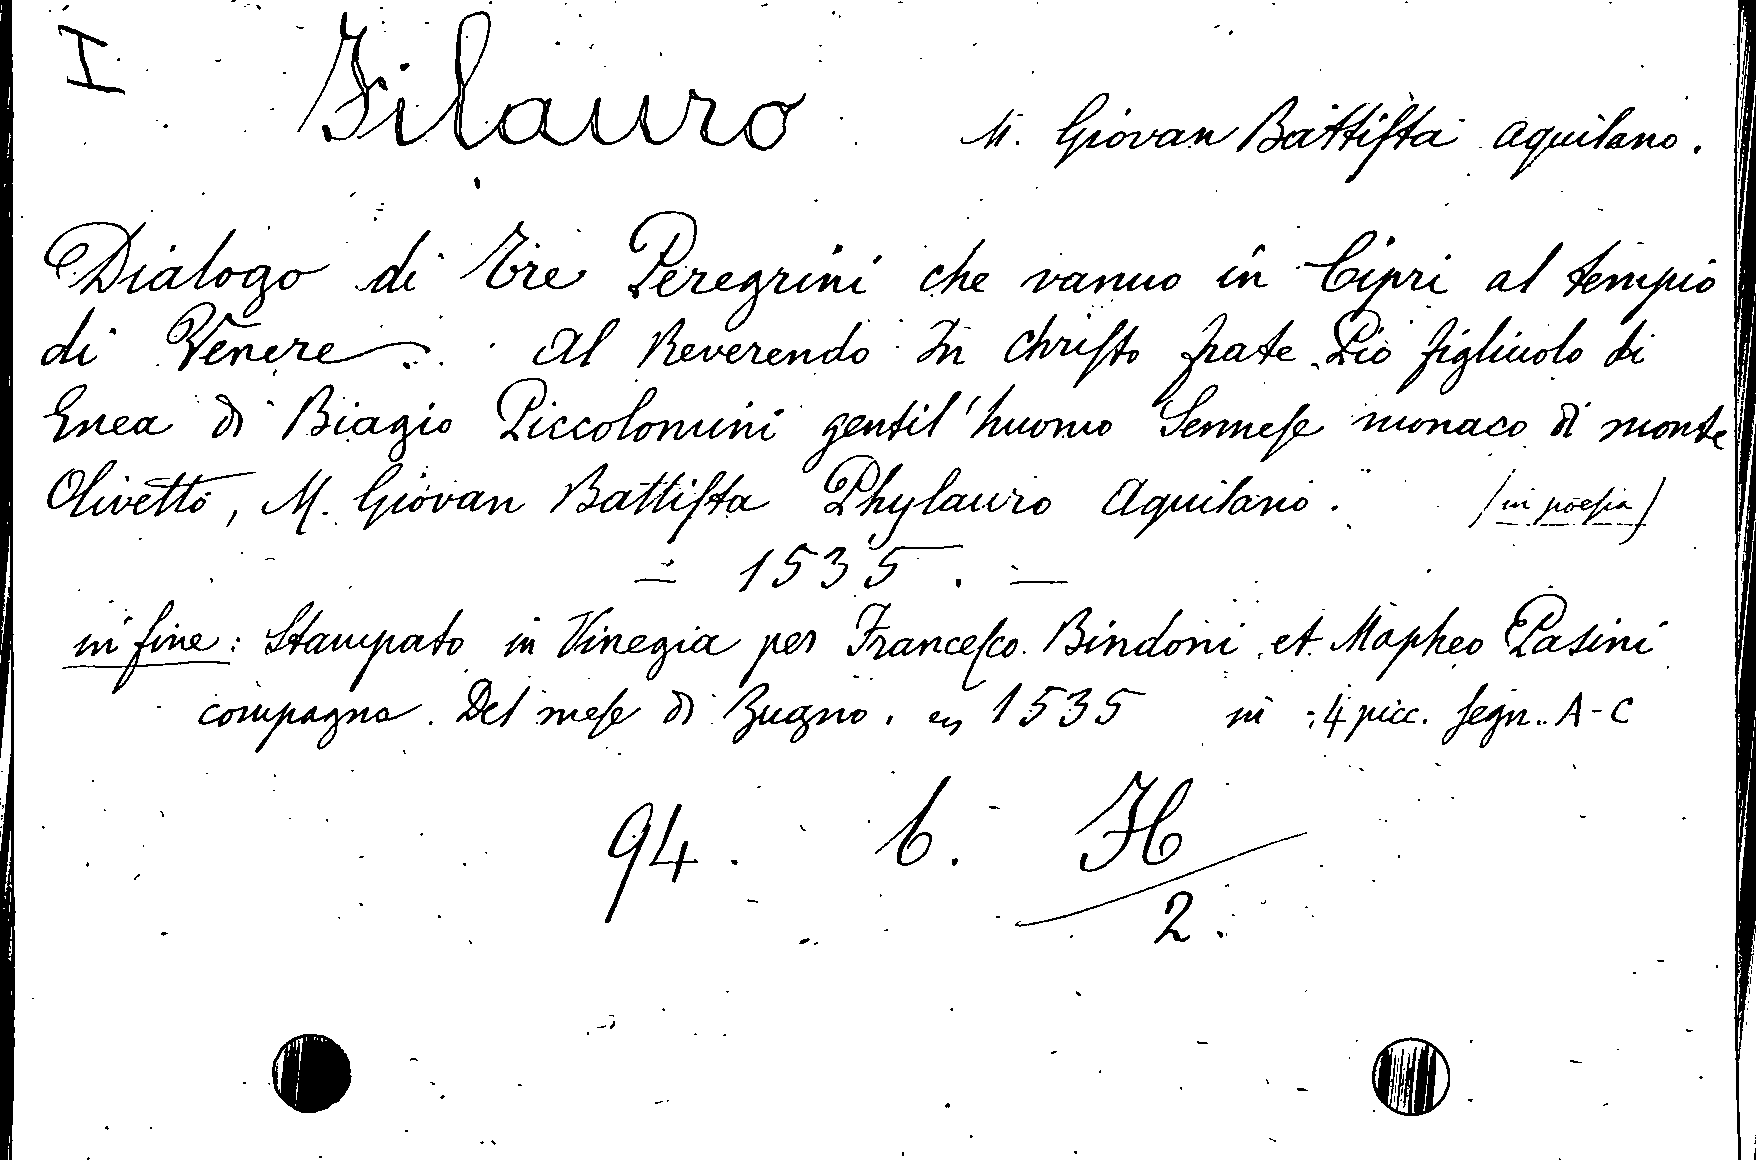 I
Filauro M. Giovan Battista Aquilano.
Dialogo di tre Peregrini che vanno in Cipri al tempio
di Venere. Al Reverendo In Christo frate Pio figliuolo di
Enea di Biagio Piccolomini gentil'huomo Sennese monaco di monte
Olivetto, M. Giovan Battista Phylauro Aquilano. (in poesia)
— 1535. —
in fine: Stampato in Vinegia per Francesco Bindoni et Mapheo Pasini
compagno. Del mese di Zugno. 1535 in 4 picc. segn. A-C
94. 6. H
2.